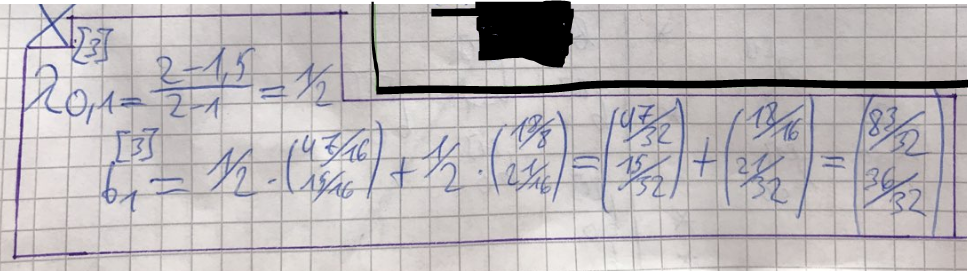 X
λ₀,₁^[3] = (2-1,5)/(2-1) = 1/2
b₁^[3] = 1/2 · (47/16 15/16) + 1/2 · (18/8 21/16) = (47/32 15/32) + (18/16 21/32) = (83/32 36/32)